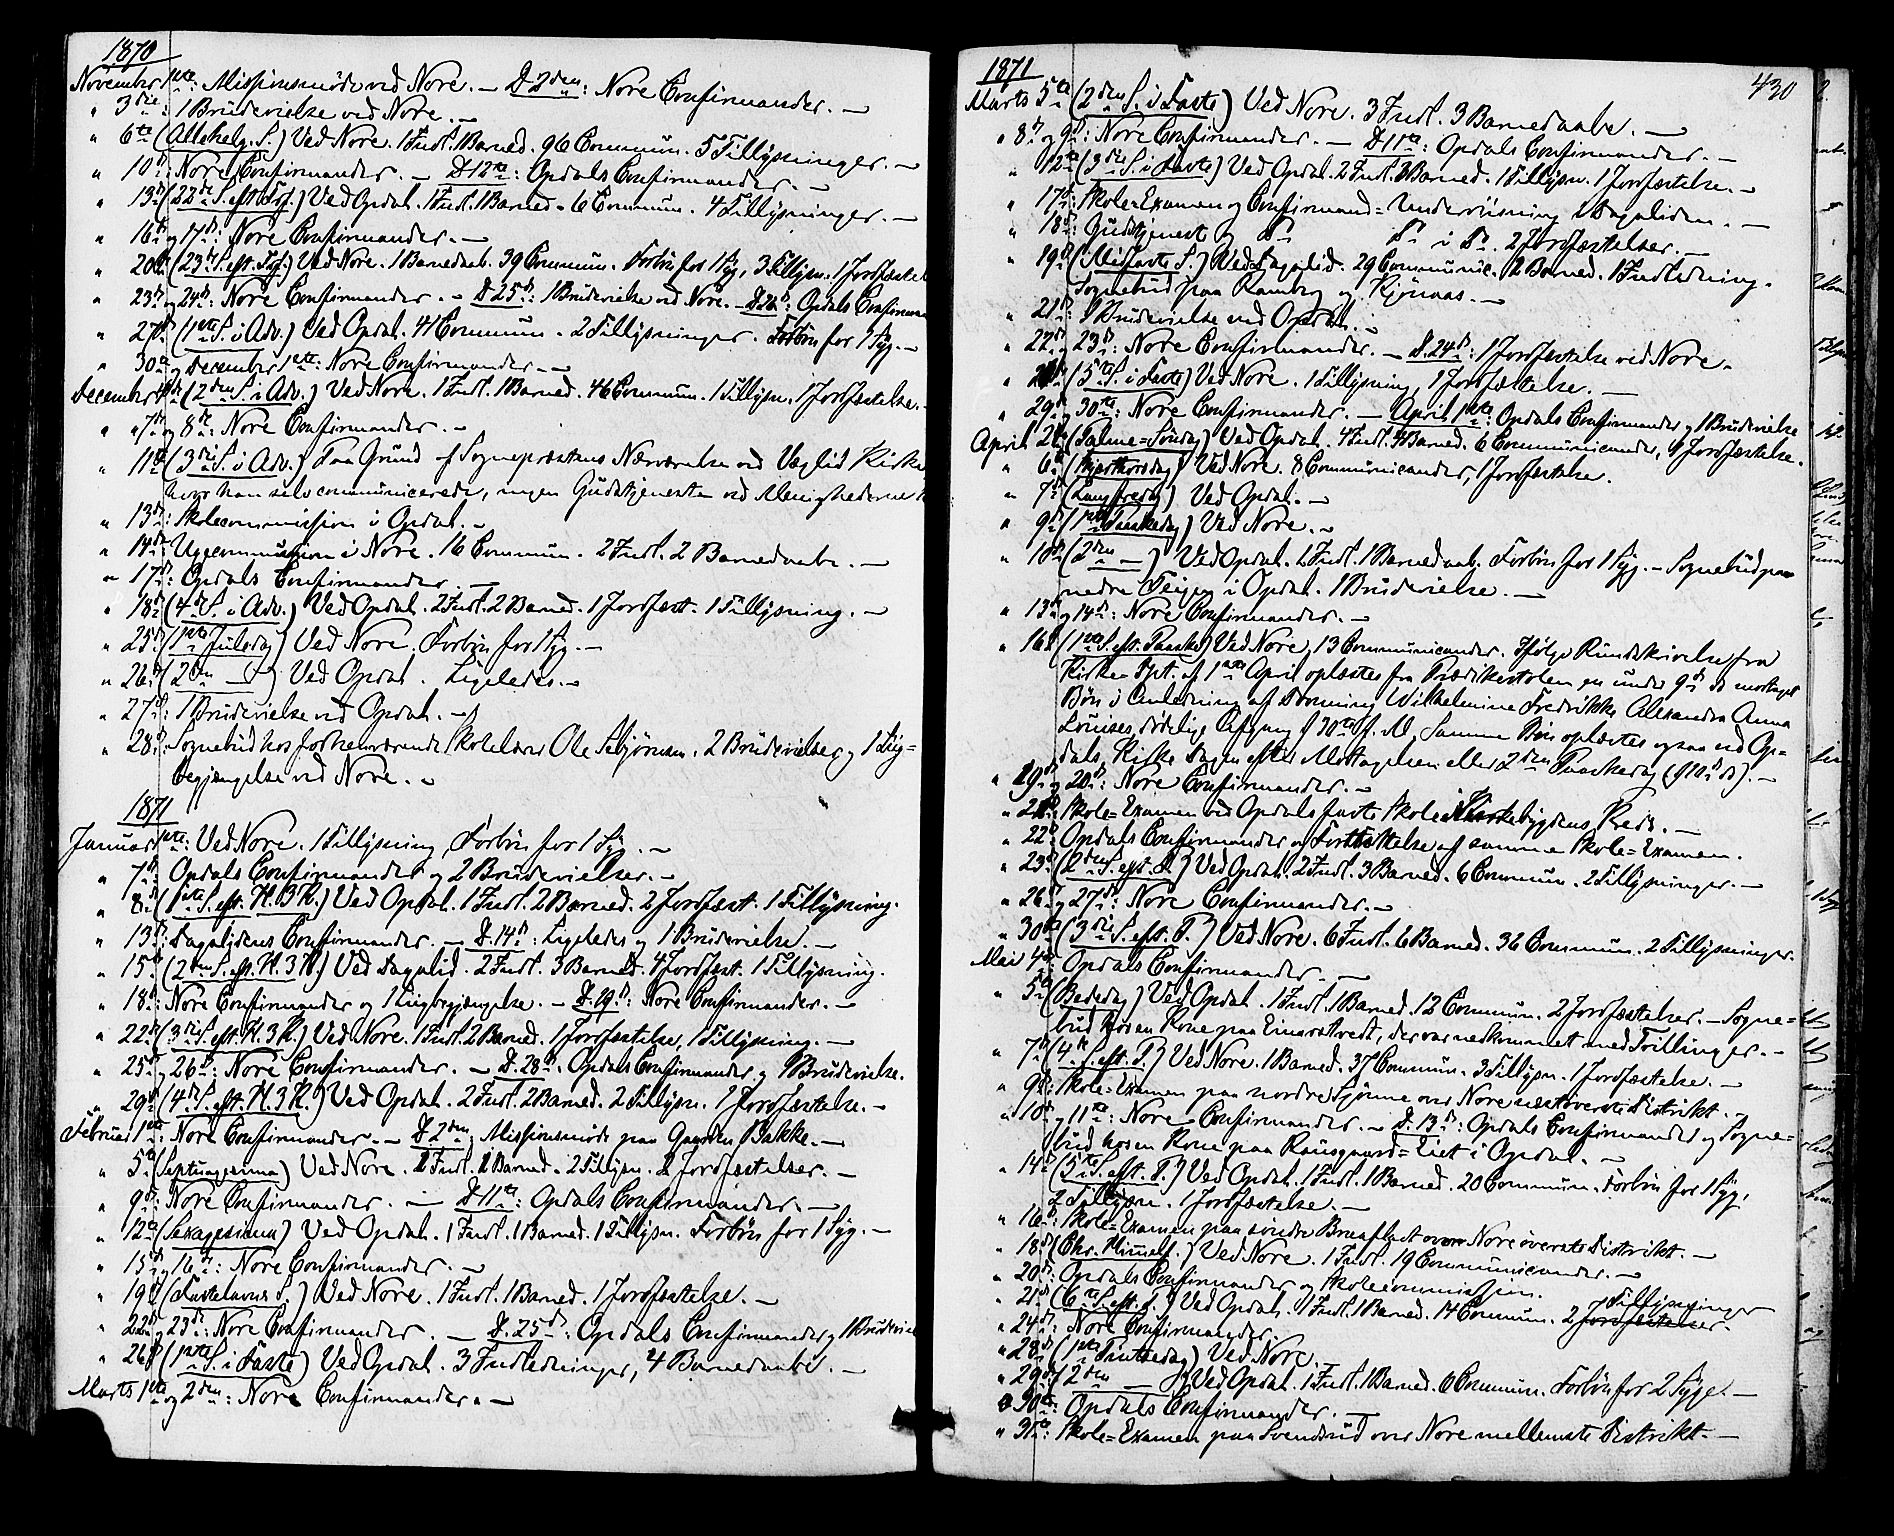 1870
November 1ste: Missionsmøde ved Nore. – D. 2den: Nore Confirmander. –
" 3die: 1 Brudevielse ved Nore. –
" 6te (Allehelg. S.) Ved Nore. 1 Indl. 1 Barned. 96 Commun. 5 Tillysninger. –
" 10d: Nore Confirmander. – D. 12te: Opdals Confirmander. –
" 13d (22de S. eft. Tref.) Ved Opdal. 1 Indl. 1 Barned. 6 Commun. 4 Tillysninger. –
" 16d og 17d: Nore Confirmander. –
" 20d (23d S. eft. Tref.) Ved Nore. 1 Barnedaab. 39 Commun. Forbøn for 1 Syg, 3 Tillysn. 1 Jordfæstel
" 23d og 24d: Nore Confirmander. – D. 25d: 1 Brudevielse ved Nore. – D. 26d: Opdals Confirman
" 27d (1ste S. i Adv.) Ved Opdal. 41 Commun. 2 Tillysninger. Forbøn for 1 Syg. –
" 30te og December 1ste: Nore Confirmander. –
December 4de (2den S. i Adv.) Ved Nore. 1 Indl. 1 Barned. 46 Commun. 1 Tillysn. 1 Jordfæstelse. –
" 7de og 8de: Nore Confirmander. –
" 11te (3die S. i Adv.) Paa Grund af Sognepræstens Nærværelse ved Væglid Kirke
hvor han selv communicerede, ingen Gudstjeneste ved Menighederne
" 13d: Skolecommission i Opdal. –
" 14d: Ugecommunion i Nore. 16 Commun. 2 Indl. 2 Barnedaabe. –
" 17d: Opdals Confirmander. –
" 18d (4d S. i Adv.) Ved Opdal. 2 Indl. 2 Barned. 1 Jordfæst. 1 Tillysning. –
" 25d (1ste Juledag) Ved Nore. Forbøn for 1 Syg. –
" 26d (2den –) Ved Opdal. Ligeledes. –
" 27d: 1 Brudevielse ved Opdal. –
" 28d: Sognebud hos forhenværende Skolelærer Ole Sebjørnsen. 2 Brudevielser og 1 Liig=
begjængelse ved Nore. –
1871
Januar 1ste: Ved Nore. 1 Tillysning, Forbøn for 1 Syg. –
" 7d: Opdals Confirmander og 2 Brudevielser. –
" 8d (1ste S. eft. H. 3 K.) Ved Opdal. 1 Indl. 2 Barned. 2 Jordfæst. 1 Tillysning.
" 13d: Dagalidens Confirmander. – D. 14d: Ligeledes og 1 Brudevielse. –
" 15d (2den S. eft. H. 3 K.) Ved Dagalid. 2 Indl. 3 Barned. 4 Jordfæst. 1 Tillysning.
" 18d: Nore Confirmander og 1 Liigbegjængelse. – D. 19d: Nore Confirmander. –
" 22d (3die S. eft. H. 3 K.) Ved Nore. 1 Indl. 2 Barned. 1 Jordfæstelse, 1 Tillysning. –
" 25d og 26d: Nore Confirmander. – D. 28d: Opdals Confirmander og 1 Brudevielse.
" 29d (4d S. eft. H. 3 K.) Ved Opdal. 2 Indl. 2 Barned. 2 Tillysn. 1 Jordfæstelse. –
Februar 1ste: Nore Confirmander. – D. 2den: Missionsmøde paa Gaarden Bakke. –
" 5te (Septuagesima) Ved Nore. 1 Indl. 1 Barned. 2 Tillysn. 2 Jordfæstelser. –
" 9d: Nore Confirmander. – D. 11te: Opdals Confirmander. –
" 12te (Sexagesima) Ved Opdal. 1 Indl. 1 Barned. 1 Tillysn. Forbøn for 1 Syg. –
" 15d og 16d: Nore Confirmander. –
" 19d (Fastelavns S.) Ved Nore. 1 Indl. 1 Barned. 1 Jordfæstelse. –
" 22d og 23d: Nore Confirmander. – D. 25d: Opdals Confirmander og 1 Brudeviel
" 26d (1ste S. i Faste) Ved Opdal. 3 Indledninger, 4 Barnedaabe. –
Marts 1ste og 2den: Nore Confirmander. –
1871
430
Marts 5te (2den S. i Faste) Ved Nore. 3 Indl. 3 Barnedaabe. –
" 8d og 9d: Nore Confirmander. – D. 11te: Opdals Confirmander. –
" 12te (3die S. i Faste) Ved Opdal. 2 Indl. 3 Barned. 1 Tillysn. 1 Jordfæstelse. –
" 17d: Skole=Examen og Confirmand=Underviisning i Dagaliden. –
" 18d: Gudstjenest og Do Do i Do. 2 Jordfæstelser. –
" 19d (Midfaste S.) Ved Dagalid. 29 Communic. 2 Barned. 1 Indledning.
Sognebud paa Ramberg og Kjønaas. –
" 21d: 1 Brudevielse ved Opdal. –
" 22d og 23d: Nore Confirmander. – D. 24d: 1 Jordfæstelse ved Nore. –
" 26d (5te S. i Faste) Ved Nore. 1 Tillysning, 1 Jordfæstelse. –
" 29d og 30te: Nore Confirmander. – April 1ste: Opdals Confirmander og 1 Brudevielse
April 2d (Palme=Søndag) Ved Opdal. 4 Indl. 4 Barned. 6 Communicander, 4 Jordfæstelse.
" 6te (Skjærthorsdag) Ved Nore. 8 Communicander, 1 Jordfæstelse.
" 7d (Langfredag) Ved Opdal. –
" 9d (1ste Paaskedag) Ved Nore. –
" 10d (2den –) Ved Opdal. 1 Indl. 1 Barnedaab. Forbøn for 1 Syg. – Sognebud paa
nedre i Opdal. 1 Brudevielse. –
" 13d og 14d: Nore Confirmander. –
" 16d (1ste S. eft. Paaske) Ved Nore, 13 Communicander. Ifølge Rundskrivelse fra
Kirke=Dpt. af 1ste April oplæstes fra Prædikestolen en under 9d ds modtaget
Bøn i Anledning af Dronning Wilhelmine Fredrikke Alexandra Anna
Louises dødelige Afgang d. 30te f. M. Samme Bøn oplæstes ogsaa ved Op=
dals Kirke Dagen efter Modtagelsen eller 2den Paaskedag (d 10d ds). –
" 19d og 20d: Nore Confirmander. –
" 21d: Skole=Examen ved Opdals faste Skole i Kirkebygdens Kreds. –
" 22d: Opdals Confirmander og Fortsættelse af samme Skole=Examen.
" 23d (2den S. eft. P.) Ved Opdal. 2 Indl. 3 Barned. 6 Commun. 2 Tillysninger. –
" 26d og 27d: Nore Confirmander. –
" 30te (3die S. eft. P.) Ved Nore. 6 Indl. 6 Barned. 36 Commun. 2 Tillysninger.
Mai 4d: Opdals Confirmander. –
" 5te (Bededag) Ved Opdal. 1 Indl. 1 Barned. 12 Commun. 2 Jordfæstelser. – Sogne=
bud hos en Kone paa Einarstvedt, der var nedkommet med Tvillinger. –
" 7d (4d S. eft. P.) Ved Nore. 1 Barned. 37 Commun. 3 Tillysn. 1 Jordfæstelse. –
" 9d: Skole=Examen paa nordre Sjønne over Nore næstøverste Distrikt. –
" 10d og 11te: Nore Confirmander. – D. 13d: Opdals Confirmander og Sogne=
bud hos en Kone paa i Opdal. –
" 14d (5te S. eft. P.) Ved Opdal. 1 Indl. 1 Barned. 20 Commun. Forbøn for 1 Syg,
2 Tillysn. 1 Jordfæstelse. –
" 16d: Skole=Examen paa søndre over Nore øverste Distrikt. –
" 18d (Chr. Himmelf.) Ved Nore. 1 Indl. 19 Communicander. –
" 20d: Opdals Confirmander og Skolecommission.
" 21d (6te S. eft. P.) Ved Opdal. 1 Indl. 1 Barned. 14 Commun. 2 Jordfæstelser. Tillysninger
" 24d: Nore Confirmander.
" 28d (1ste Pintsedag) Ved Nore.
" 29d (2den –) Ved Opdal. 1 Indl. 1 Barned. 6 Commun. Forbøn for 2 Syge. –
" 30te: Opdals Confirmander. –
" 31te: Skole=Examen paa Svendsrud over Nore mellemste Distrikt. –